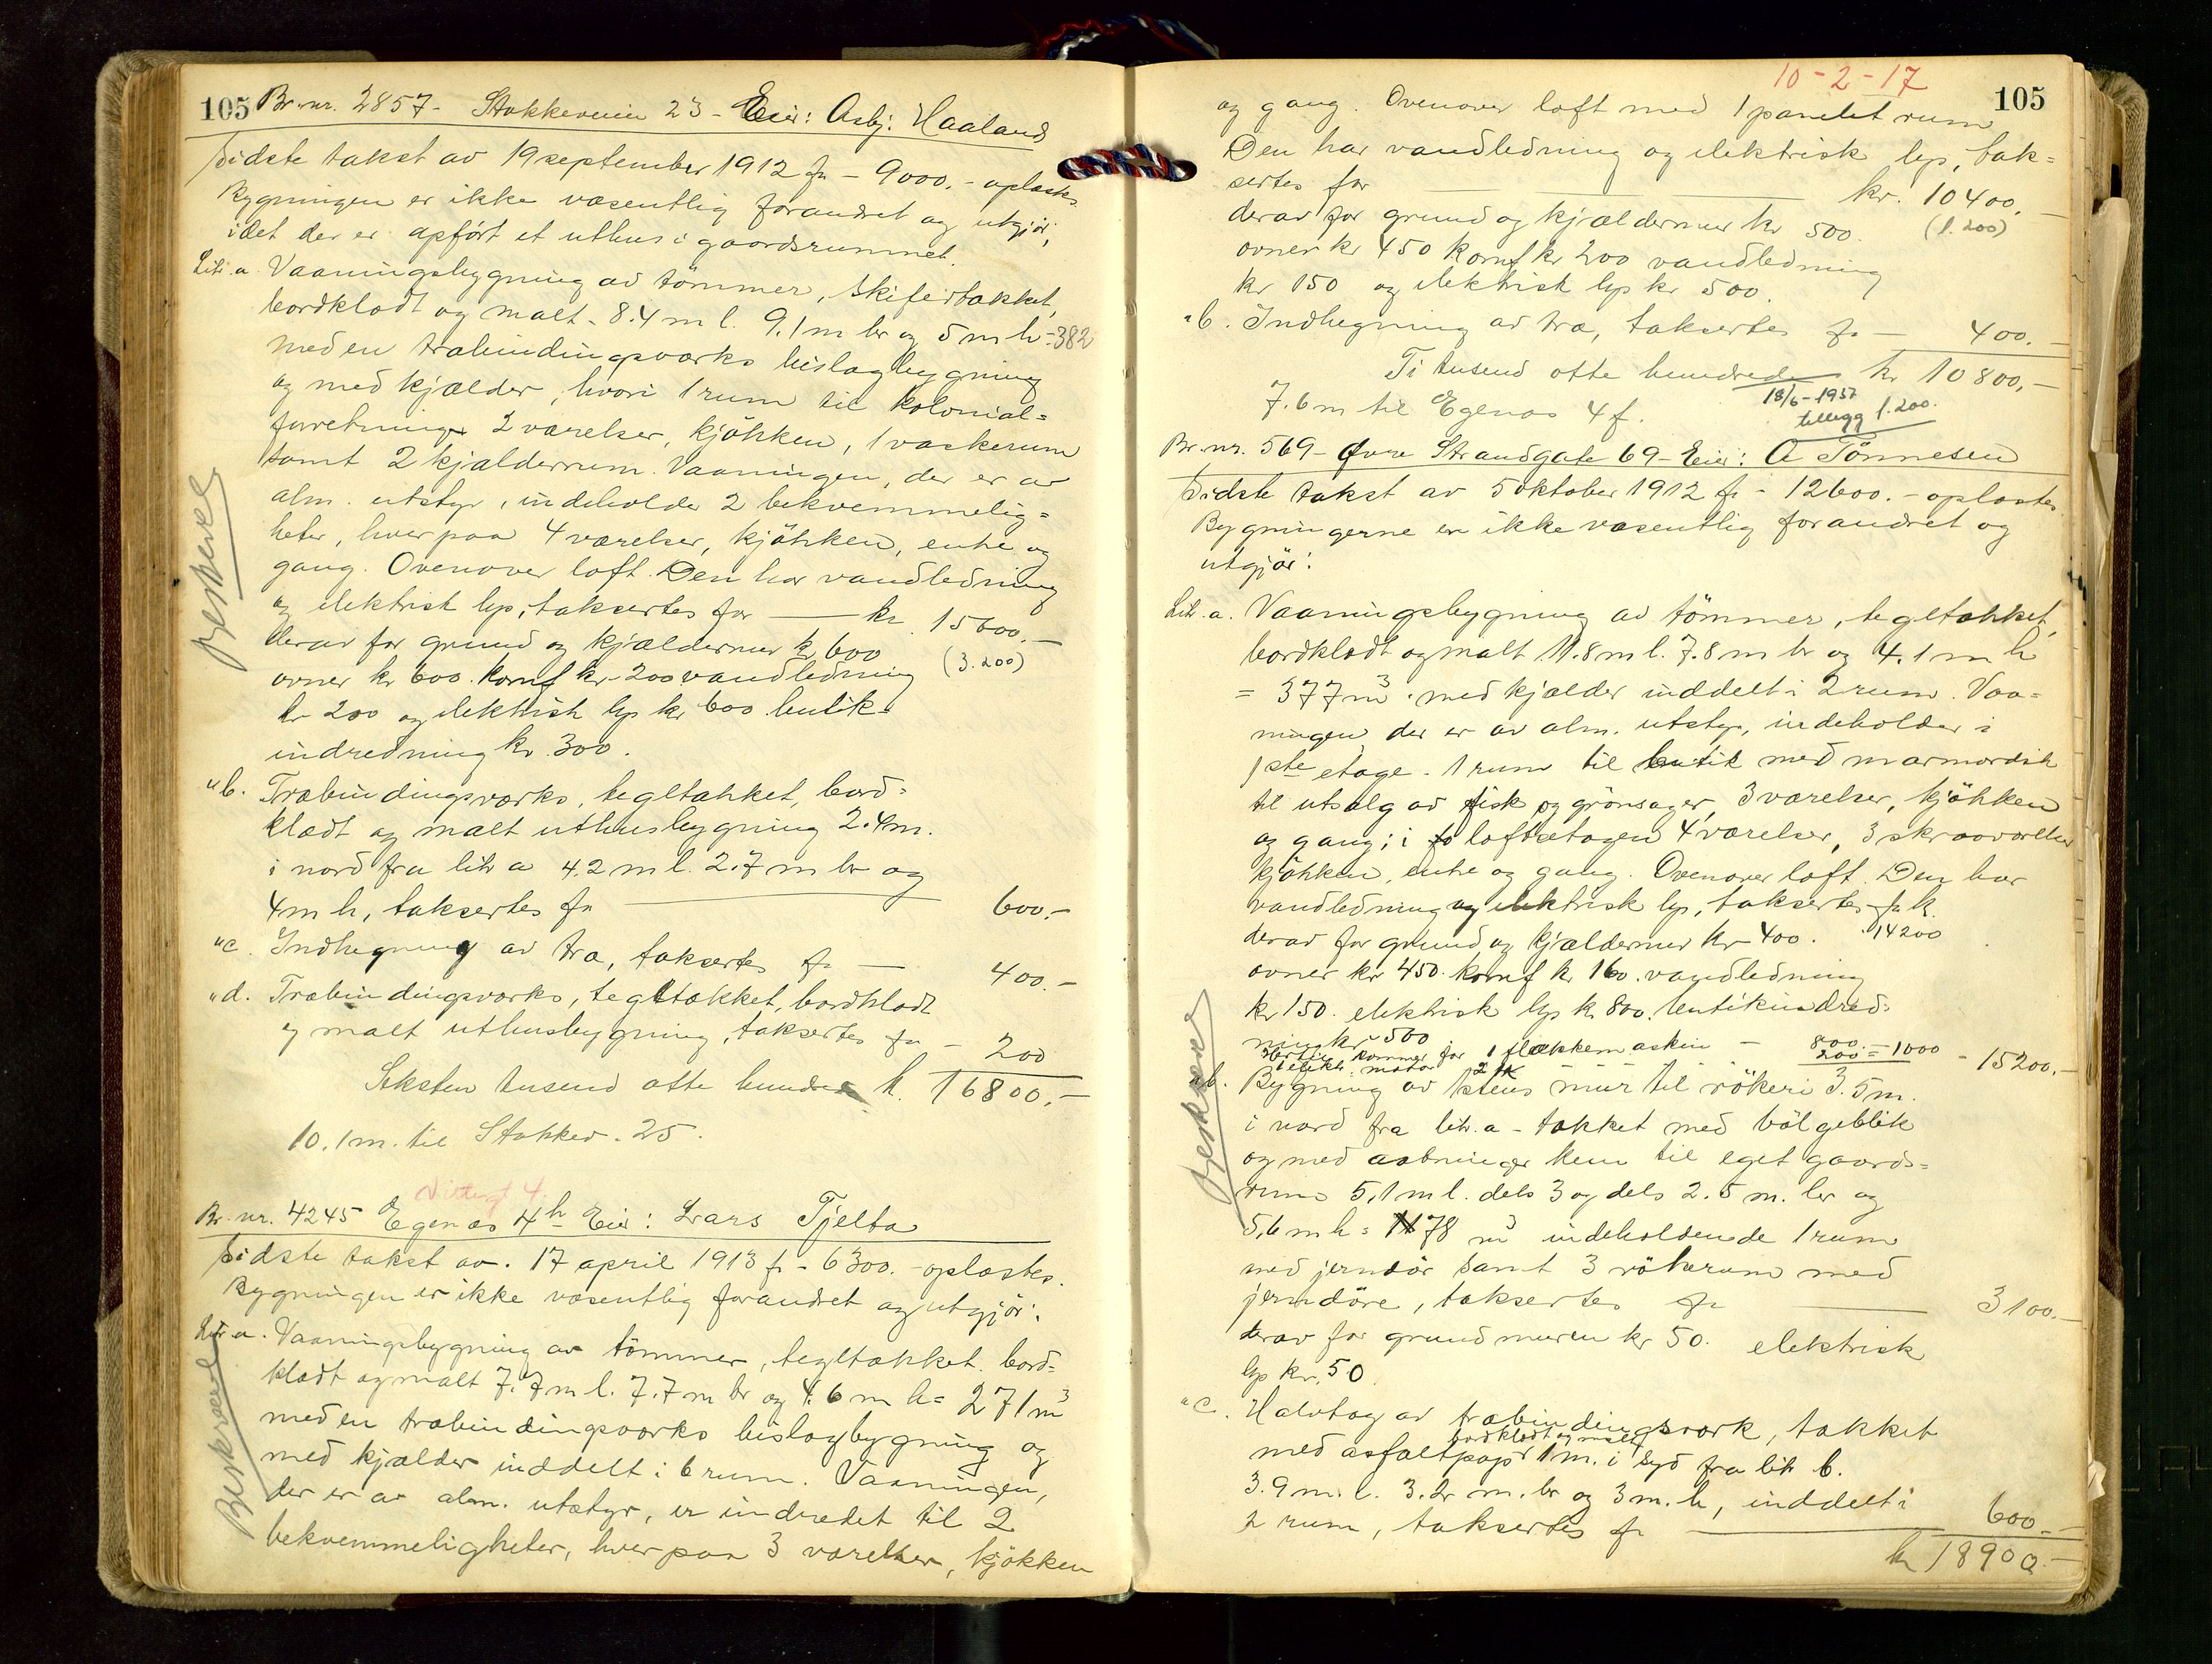 105 Br. nr. 2857 - Stokkeveien 23 - Eier: Asbj. Haaland
Sidste takst av 19 september 1912 fr - 9000.- oplæstes.
Bygningen er ikke væsentlig forandret og utgjör,
idet der er opfört et uthus i gaardsrummet.
Litr. a. Vaaningsbygning av tömmer, skifertækket,
bordklædt og malt - 8.4 m l. 9.1 m br og 5 m h = 382
med en træbindingsværks bislagbygning
og med kjælder, hvori 1 rum til kolonial=
forretning, 2 værelser, kjökken, 1 vaskerum
samt 2 kjælderrum. Vaaningen, der er av
alm. utstyr, indeholder 2 bekvemmelig=
heter, hver paa 4 værelser, kjökken, entre og
gang. Ovenover loft. Den har vandledning
og elektrisk lys, taksertes for kr. 15600.-
derav for grund og kjældermur kr 600 (3.200)
ovner kr 600. komf kr. 200 vandledning
kr 200 og elektrisk lys kr 600 butik=
indredning kr. 300.
Beskrevet
" b. Træbindingsværks, tegltækket, bord=
klædt og malt uthusbygning 2.4 m.
i nord fra litr a 4.2 m l. 2.7 m br og
4 m h, taksertes fr 600.-
" c. Indhegning av træ, taksertes fr - 400.-
" d. Træbindingsværks, tegltækket, bordklædt
og malt uthusbygning, taksertes fr - 200
Seksten tusend otte hundre k. 16800.-
10.1 m. til Stokkev. 25.
Br. nr. 4245 Egenæs 4h Eier: Lars Tjelta
Sidste takst av. 17 april 1913 fr - 6300.- oplæstes.
Bygningen er ikke væsentlig forandret og utgjör:
Litr. a. Vaaningsbygning av tömmer, tegltækket. bord=
klædt og malt 7.7 m l. 7.7 m br og 4.6 m h = 271 m3
med en træbindingsværks bislagbygning og
med kjælder inddelt i 6 rum. Vaaningen,
der er av alm. utstyr, er indredet til 2
bekvemmeligheter, hver paa 3 værelser, kjökken
Beskrevet
10-2-17
105
og gang. Ovenover loft med 1 panelet rum
Den har vandledning og elektrisk lys, tak=
sertes for kr. 10400.-
derav for grund og kjældermur kr 500. (1.200)
ovner kr 450 komf kr 200 vandledning
kr 150 og elektrisk lys kr 500.
" b. Indhegning av træ, taksertes fr - 400.-
Ti tusend otte hundrede kr 10800,-
7.6 m til Egenæs 4 f.
18/6-1937
tillegg 1.200.
Br. nr. 569 - Øvre Strandgate 69 - Eier: A Tönnesen
Sidste takst av 5 oktober 1912 fr - 12600.- oplæstes
Bygningerne er ikke væsentlig forandret og
utgjör:
Litr. a. Vaaningsbygning av tömmer, tegltækket,
bordklædt og malt 11.8 m l. 7.8 m br og 4.1 m h
= 377 m3. med kjælder inddelt i 2 rum. Vaa=
ningen der er av alm. utstyr, indeholder i
1ste etage. 1 rum til butik med marmordisk
til utsalg av fisk og grönsager, 3 værelser, kjökken
og gang; i loftsetagen 4 værelser, 3 skraaværelser
kjökken, entre og gang. Ovenover loft. Den har
vandledning og elektrisk lys, taksertes fr k.
derav for grund og kjældermur kr 400. 14200
ovner kr 450. komf k 160. vandledning
kr 150. elektrisk lys k 800. butikindred=
ning kr 500
Hertil kommer for 1 flækkemaskin - 800.-
1 elektr. motor 2 200 = 1000 - 15200.-
Beskrevet
" b. Bygning av 1 stens mur til rökeri 3.5 m.
i nord fra litr. a - tækket med bölgeblik
og med aabninger kun til eget gaards=
rum 5,1 m l. dels 3 og dels 2.5 m. br og
5,6 m h = 78 m3 indeholdende 1 rum
med jerndör samt 3 rökerum med
jerndöre, taksertes fr 3100.-
derav for grundmuren kr 50. elektrisk
lys kr. 50
" c. Halvtag av træbindingsværk, tækket
bordklædt og malt
med asfaltpap 1 m. i syd fra litr b.
3.9 m. l. 3.2 m. br og 3 m. h, inddelt i
2 rum, taksertes fr 600.-
kr 18900.-